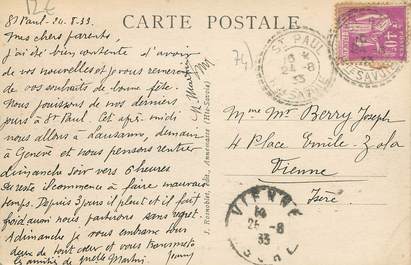 12€
CARTE POSTALE
St Paul - 24.8.33
Mes chers parents,
J'ai été bien contente d'avoir
de vos nouvelles et je vous remercie
de vos souhaits de bonne fête.
Nous jouissons de nos derniers
jours à St Paul. Cet après midi
nous allons à Lausanne, demain
à Genève et nous pensons rentrer
dimanche soir vers 6 heures
Du reste il commence à faire mauvais
temps. Depuis 3 jours il pleut et il fait
froid aussi nous partirons sans regret.
A dimanche, je vous embrasse tous
deux de tout cœur et vous transmets
Jenny
74)
ST PAUL
24 -8
33
HTE SAVOIE
J. Rosnoblet, édit., Annemasse (Hte-Savoie)
Mme Mr Berry Joseph
4 Place Emile-Zola
Vienne
Isère
VIENNE
25 -8
33
ISERE